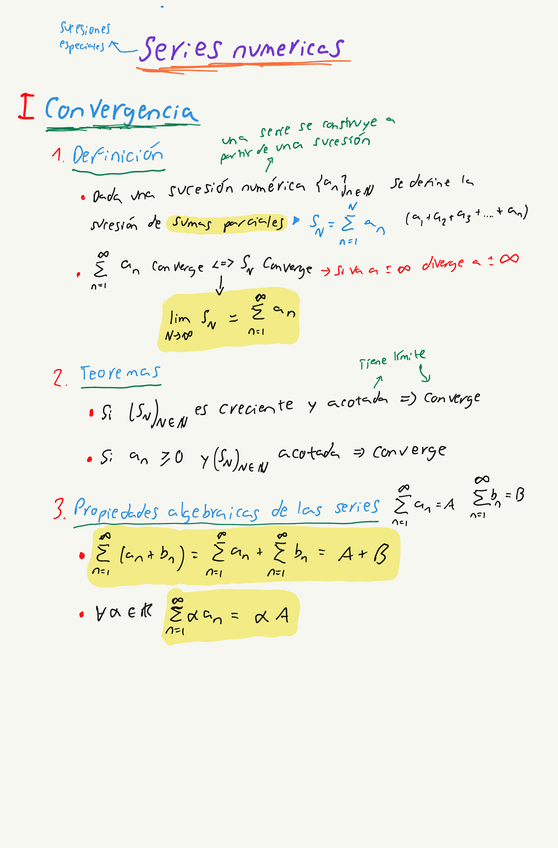 sucesiones
especiales
Series numericas
I Convergencia
una serie se construye a
partir de una sucesión
1. Definición
• Dada una sucesión numérica {an}n∈ℕ se define la
sucesión de sumas parciales ▸ S_N = ∑_{n=1}^{N} a_n (a₁+a₂+a₃+....+a_n)
• ∑_{n=1}^{∞} a_n converge <=> S_N converge → si va a ± ∞ diverge a ± ∞
↓
lim_{N→∞} S_N = ∑_{n=1}^{∞} a_n
Tiene límite
2. Teoremas
• Si (S_N)_{N∈ℕ} es creciente y acotada => converge
• Si a_n ≥ 0 y (S_N)_{N∈ℕ} acotada => converge
3. Propiedades algebraicas de las series ∑_{n=1}^{∞} a_n = A ∑_{n=1}^{∞} b_n = B
• ∑_{n=1}^{∞} (a_n + b_n) = ∑_{n=1}^{∞} a_n + ∑_{n=1}^{∞} b_n = A + B
• ∀α∈ℝ ∑_{n=1}^{∞} α a_n = α A